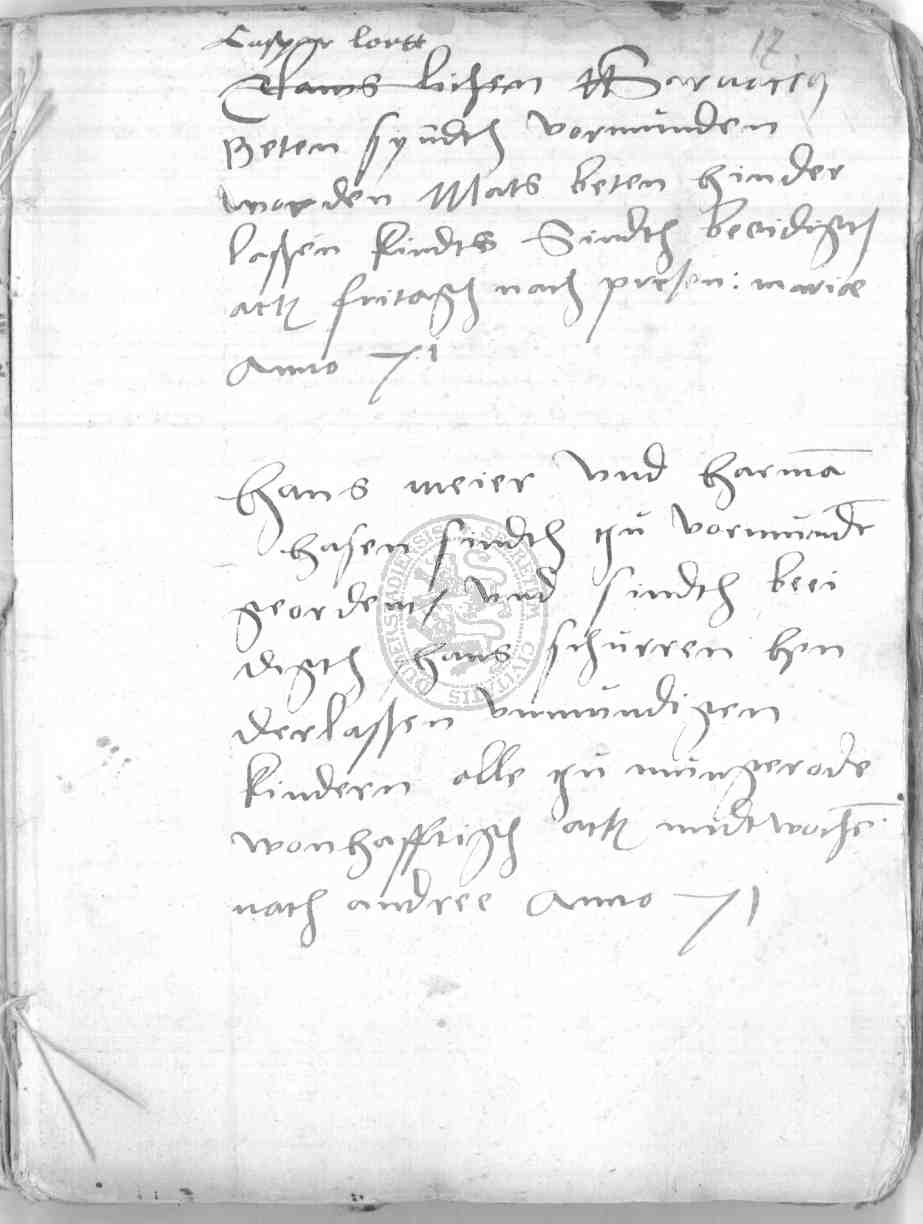 17
Caspar lortt
Hans lichen
Beten syndth vormunden
worden Mats beten hinder
laßen kindts Sindth beeidigth
actz fritagh nach presen: mariæ
Anno 71
Hans meier vnd harmā
hasen sindth zu vormunde
geordent / vnd sindth beei
digth hans schurren hyn
derlaßen vnmundigen
kindern alle zu mungerode
wonhafftigh actz midtwoche
nach andree Anno 71
SECRETUM CIVITATIS DUDERSTADIENSIS